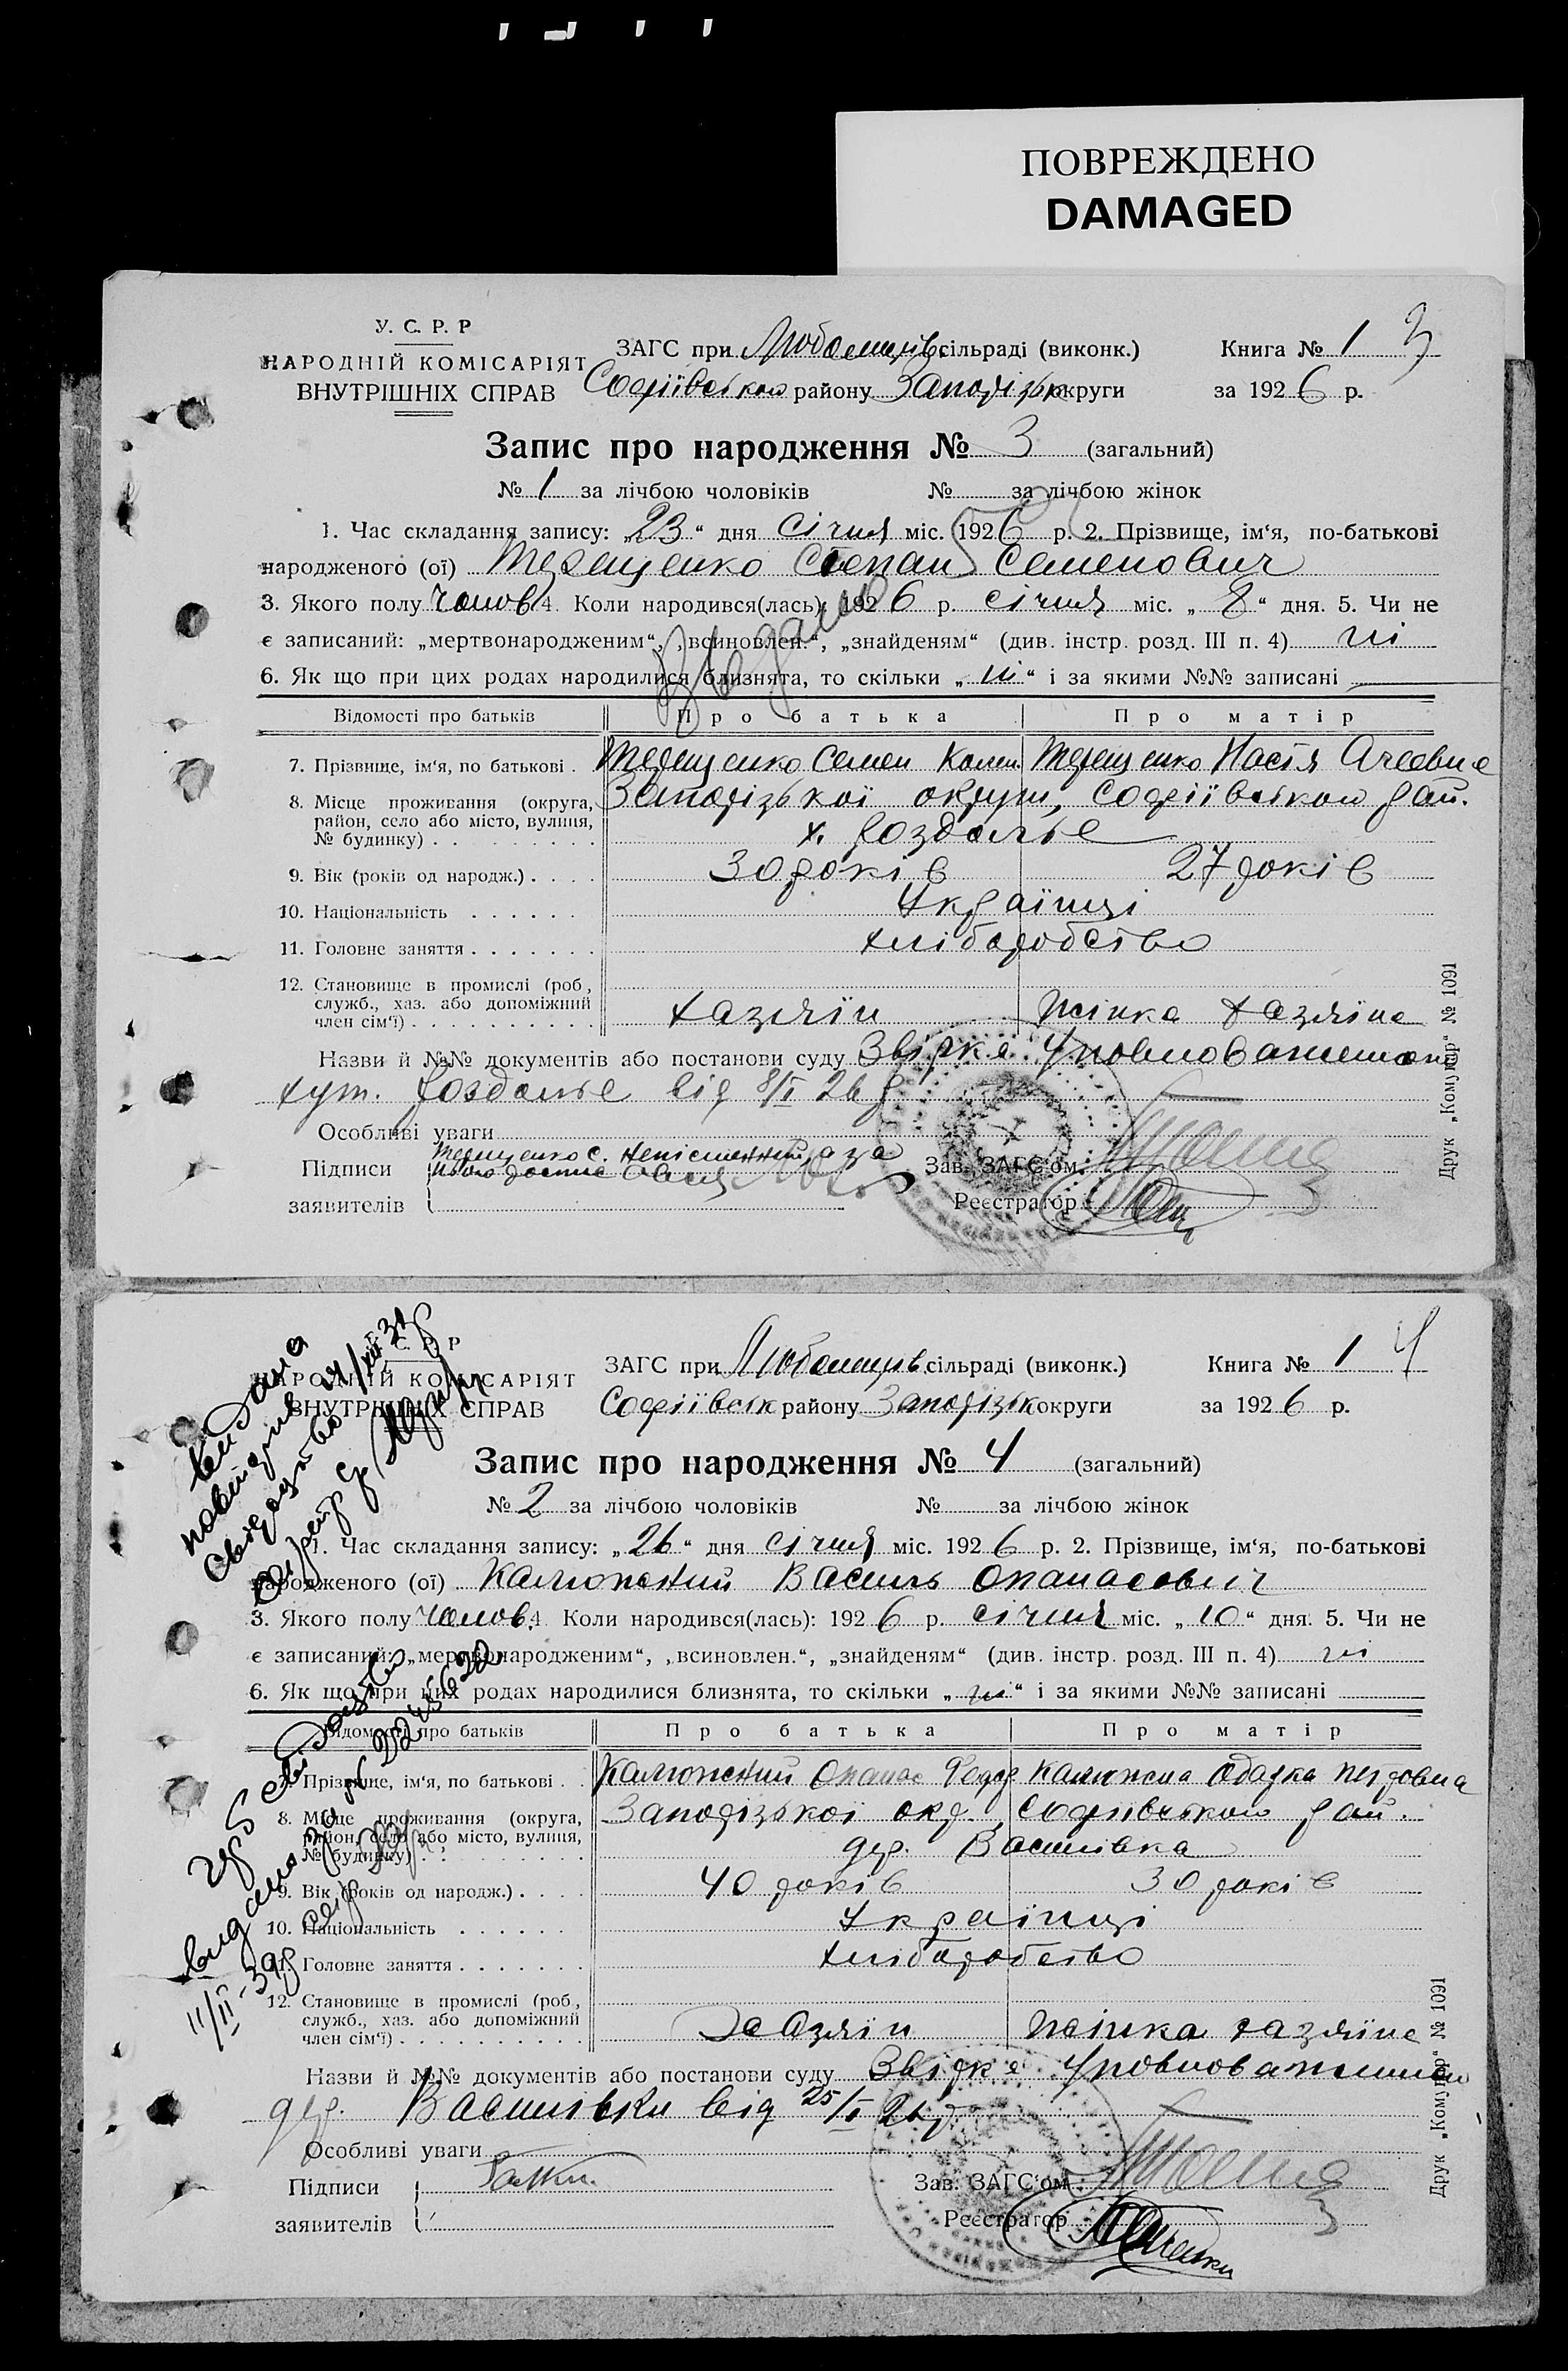 ПОВРЕЖДЕНО
DAMAGED
У. С. Р. Р
НАРОДНІЙ КОМІСАРІЯТ
ВНУТРІШНІХ СПРАВ
ЗАГС при Любомирів. сільраді (виконк.)
Софіївськой району Запоріжк округи
Книга № 1 3
за 1926 р.
Запис про народження № 3 (загальний)
№ 1 за лічбою чоловіків № за лічбою жінок
1. Час складання запису: „23“ дня січня міс. 1926 р. 2. Прізвище, ім‘я, по-батькові
народженого (ої) Терещенко Степан Семенович
3. Якого полу чолов 4. Коли народився(лась): 1926 р. січня міс. „8“ дня. 5. Чи не
є записаний: „мертвонародженим“, „всиновлен.“, „знайденям“ (див. інстр. розд. III п. 4) ні
6. Як що при цих родах народилися близнята, то скільки „ні“ і за якими №№ записані
Відомості про батьків Про батька Про матір
7. Прізвище, ім‘я, по батькові . Терещенко Семен Терещенко Настя
8. Місце проживання (округа, район, село або місто, вулиця, № будинку) Запорізької округи, Софіївськой рай.
х. Роздолье
9. Вік (років од народж.) . . . . 30 років 27 років
10. Національність . . . . . . Українці
11. Головне заняття . . . . . . . хліборобство
12. Становище в промислі (роб., служб., хаз. або допоміжний член сім‘ї) . . . . . . . . . . хазяїн жінка хазяїна
Назви й №№ документів або постанови суду Звірка Уповноваженого
хут. Роздолье від 8/I 26 р
Особливі уваги
Підписи Терещенко С. неписьменний, а за
заявителів
Зав. ЗАГС‘ом
Реєстратор
Друк „Комунар“ № 1091
С. Р. Р
НАРОДНІЙ КОМІСАРІЯТ
ВНУТРІШНІХ СПРАВ
ЗАГС при Любомирів. сільраді (виконк.)
Софіївськ району Запоріжк округи
Книга № 1 4
за 1926 р.
Запис про народження № 4 (загальний)
№ 2 за лічбою чоловіків № за лічбою жінок
1. Час складання запису: „26“ дня січня міс. 1926 р. 2. Прізвище, ім‘я, по-батькові
народженого (ої) Калюжний Василь Опанасович
3. Якого полу чолов. 4. Коли народився(лась): 1926 р. січня міс. „10“ дня. 5. Чи не
є записаний: „мертвонародженим“, „всиновлен.“, „знайденям“ (див. інстр. розд. III п. 4) ні
6. Як що при цих родах народилися близнята, то скільки „ні“ і за якими №№ записані
Відомості про батьків Про батька Про матір
7. Прізвище, ім‘я, по батькові . . Калюжний Опанас Федор Калюжна Одарка
8. Місце проживання (округа, район, село або місто, вулиця, № будинку) Запорізької окр. Софіївськой рай.
дер. Василівка
9. Вік (років од народж.) . . . . 40 років 30 років
10. Національність . . . . . . Українці
11. Головне заняття . . . . . . . хліборобство
12. Становище в промислі (роб., служб., хаз. або допоміжний член сім‘ї) . . . . . . . . . . Хазяїн жінка хазяїна
Назви й №№ документів або постанови суду Звірка Уповноваженим
дер. Василівки від 25/I 26 р.
Особливі уваги
Підписи
заявителів
Зав. ЗАГС‘ом
Реєстратор
Друк „Комунар“ № 1091